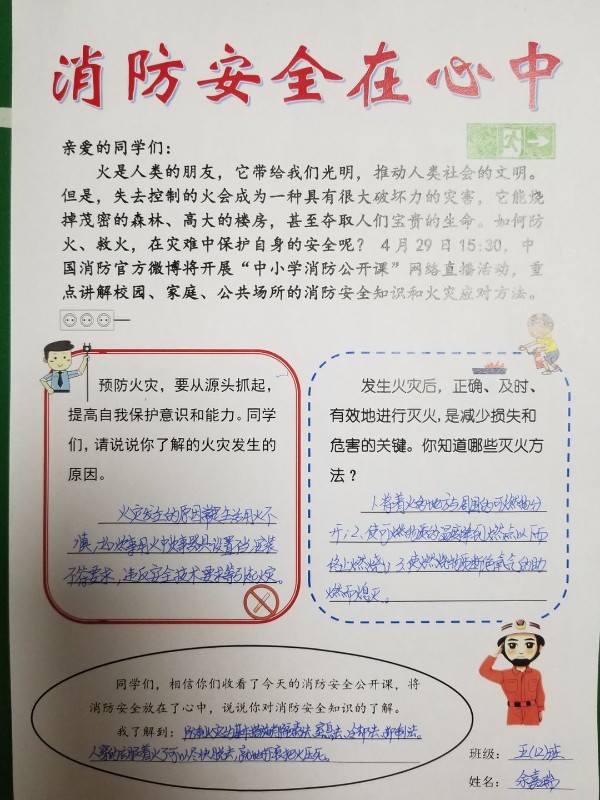 消防安全在心中
亲爱的同学们：
火是人类的朋友，它带给我们光明，推动人类社会的文明。
但是，失去控制的火会成为一种具有很大破坏力的灾害，它能烧
掉茂密的森林、高大的楼房，甚至夺取人们宝贵的生命。如何防
火、救火，在灾难中保护自身的安全呢？ 4月29日15:30，中
国消防官方微博将开展“中小学消防公开课”网络直播活动，重
点讲解校园、家庭、公共场所的消防安全知识和火灾应对方法。
预防火灾，要从源头抓起，
提高自我保护意识和能力。同学
们，请说说你了解的火灾发生的
原因。
火灾发生的原因 生活用火不
慎，
不符要求，违反安全技术要求等引起火灾。
发生火灾后，正确、及时、
有效地进行灭火，是减少损失和
危害的关键。你知道哪些灭火方
法？
1.将着火的地方与周围的可燃物分
开；2.使可燃物质的温度降到燃点以下而
终止燃烧；3.使燃烧物质断绝氧气的助
燃而熄灭。
同学们，相信你们收看了今天的消防安全公开课，将
消防安全放在了心中，说说你对消防安全知识的了解。
我了解到： 窒息法、冷却法、抑制法。
班级： 五(2)班
姓名： 余嘉